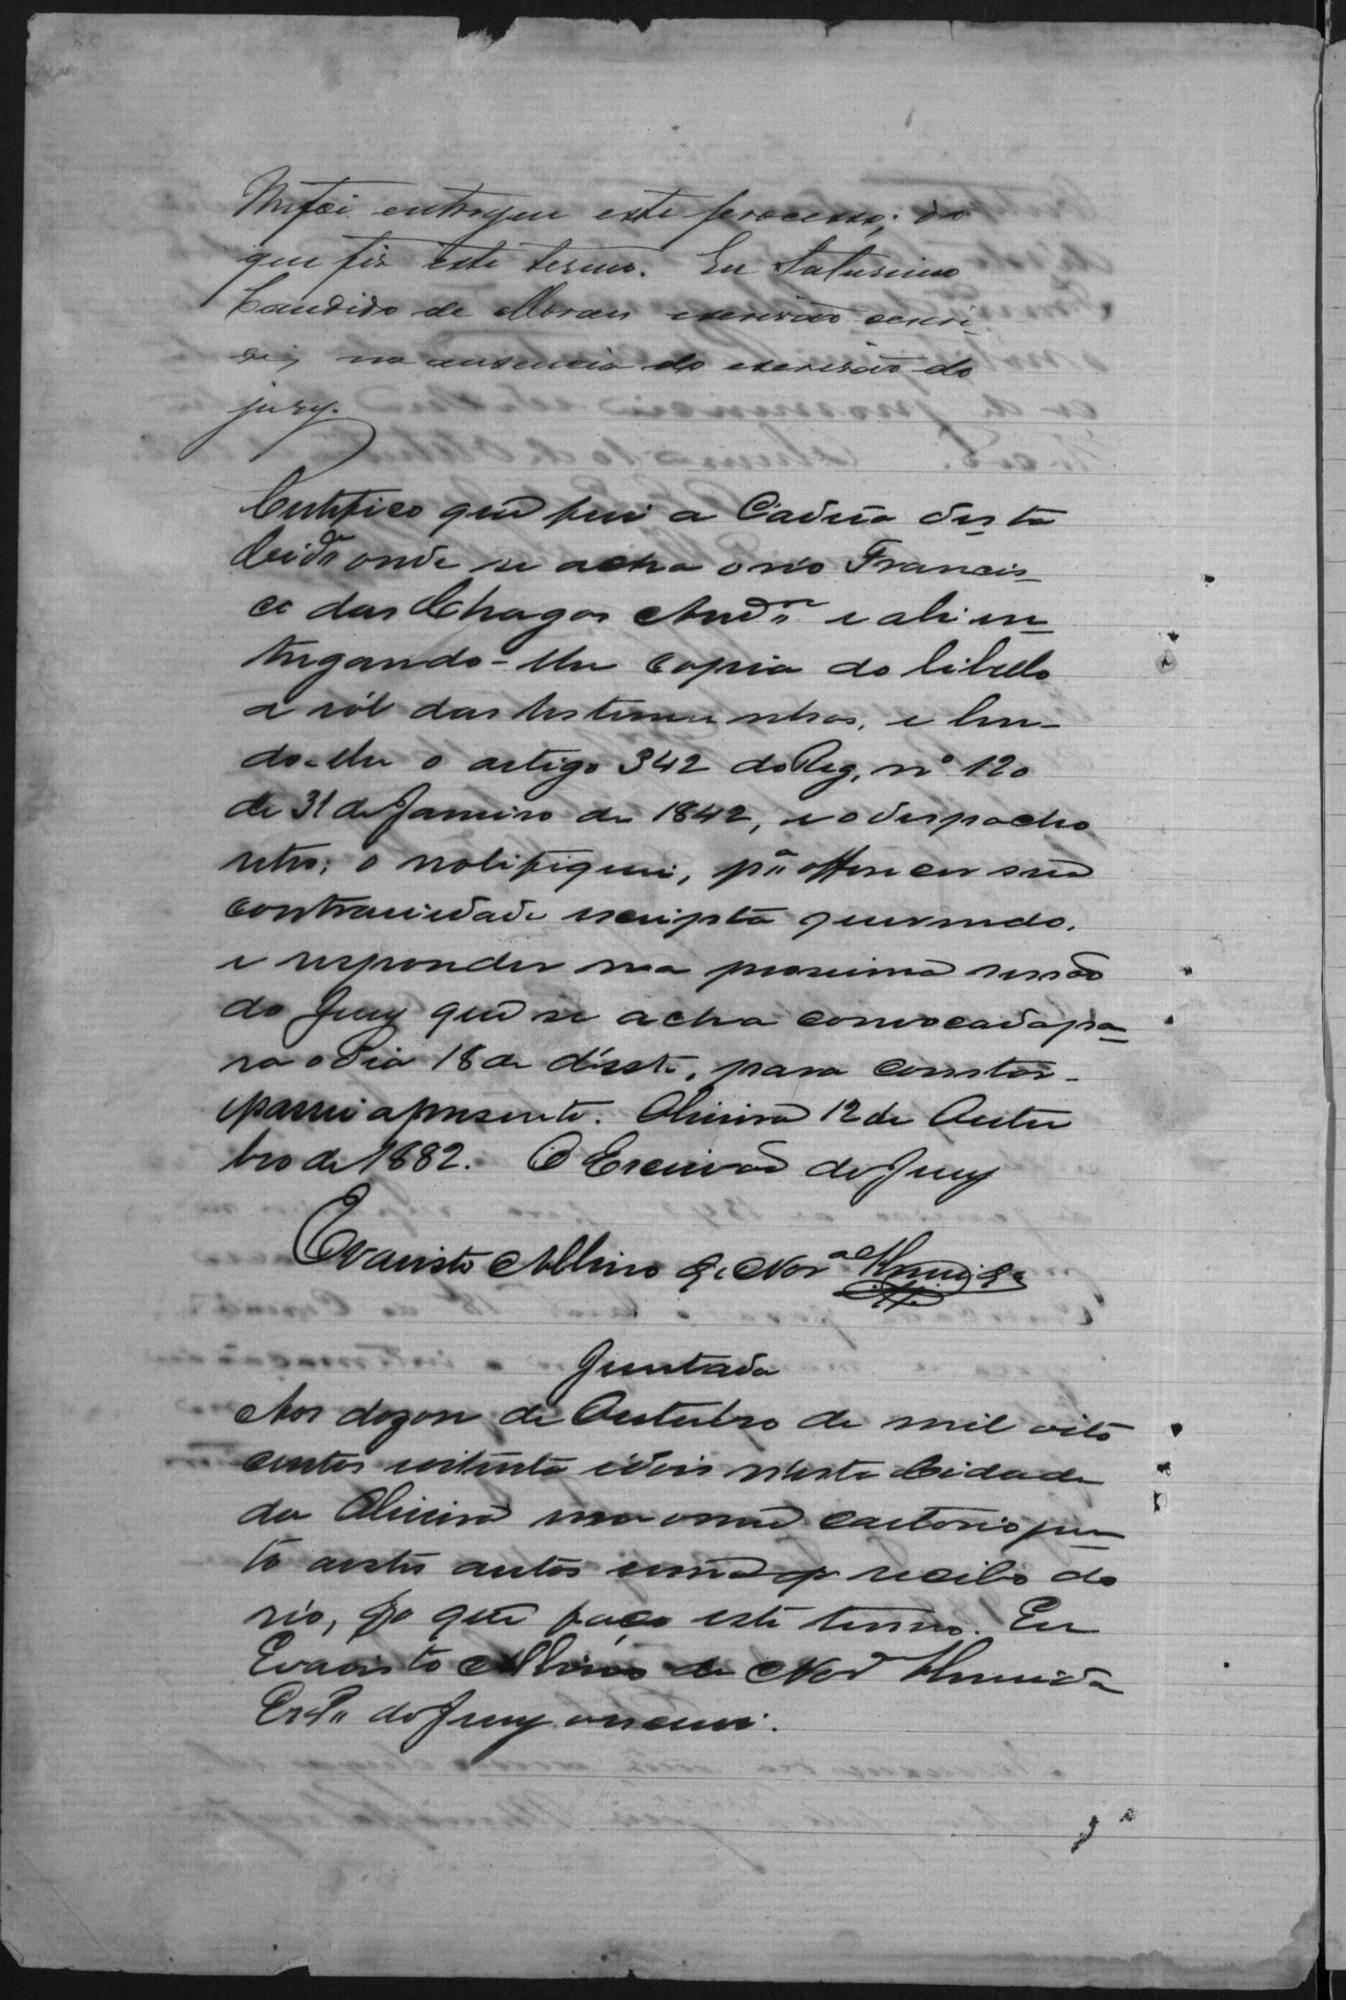 Me foi entregue este processo; do
que fiz este termo. Eu Saturnino
Candido de Moraes escrivão escri-
vi, na ausencia do escrivão do
jury.
Certifico que fui a Cadeia desta
Cide onde se acha o réo Francis-
co das Chagas Andr.e e ali en-
tregando-lhe copia do libello
e ról das testemunhas, e len-
do-lhe o artigo 342 do Reg. nº 120
de 31 de Janeiro de 1842, e o despacho
retro; o notifiquei, pª offerecer sua
contrariedade escripta querendo,
e responder na proxima sessão
do Jury que se acha convocada pa-
ra o dia 18 de deste, para constar
passei a presente. Oliveira 12 de Outu
bro de 1882. O Escrivão do Jury
Evaristo Albino de Norª Almeida
Juntada
Aos doze de Outubro de mil oito
centos oitenta e dois n'esta Cidade
da Oliveira em o meu cartorio jun-
to a estes autos o recibo do
réo, do que faço este termo. Eu
Evaristo Albino de Norª Almeida
do Jury o escrevi.